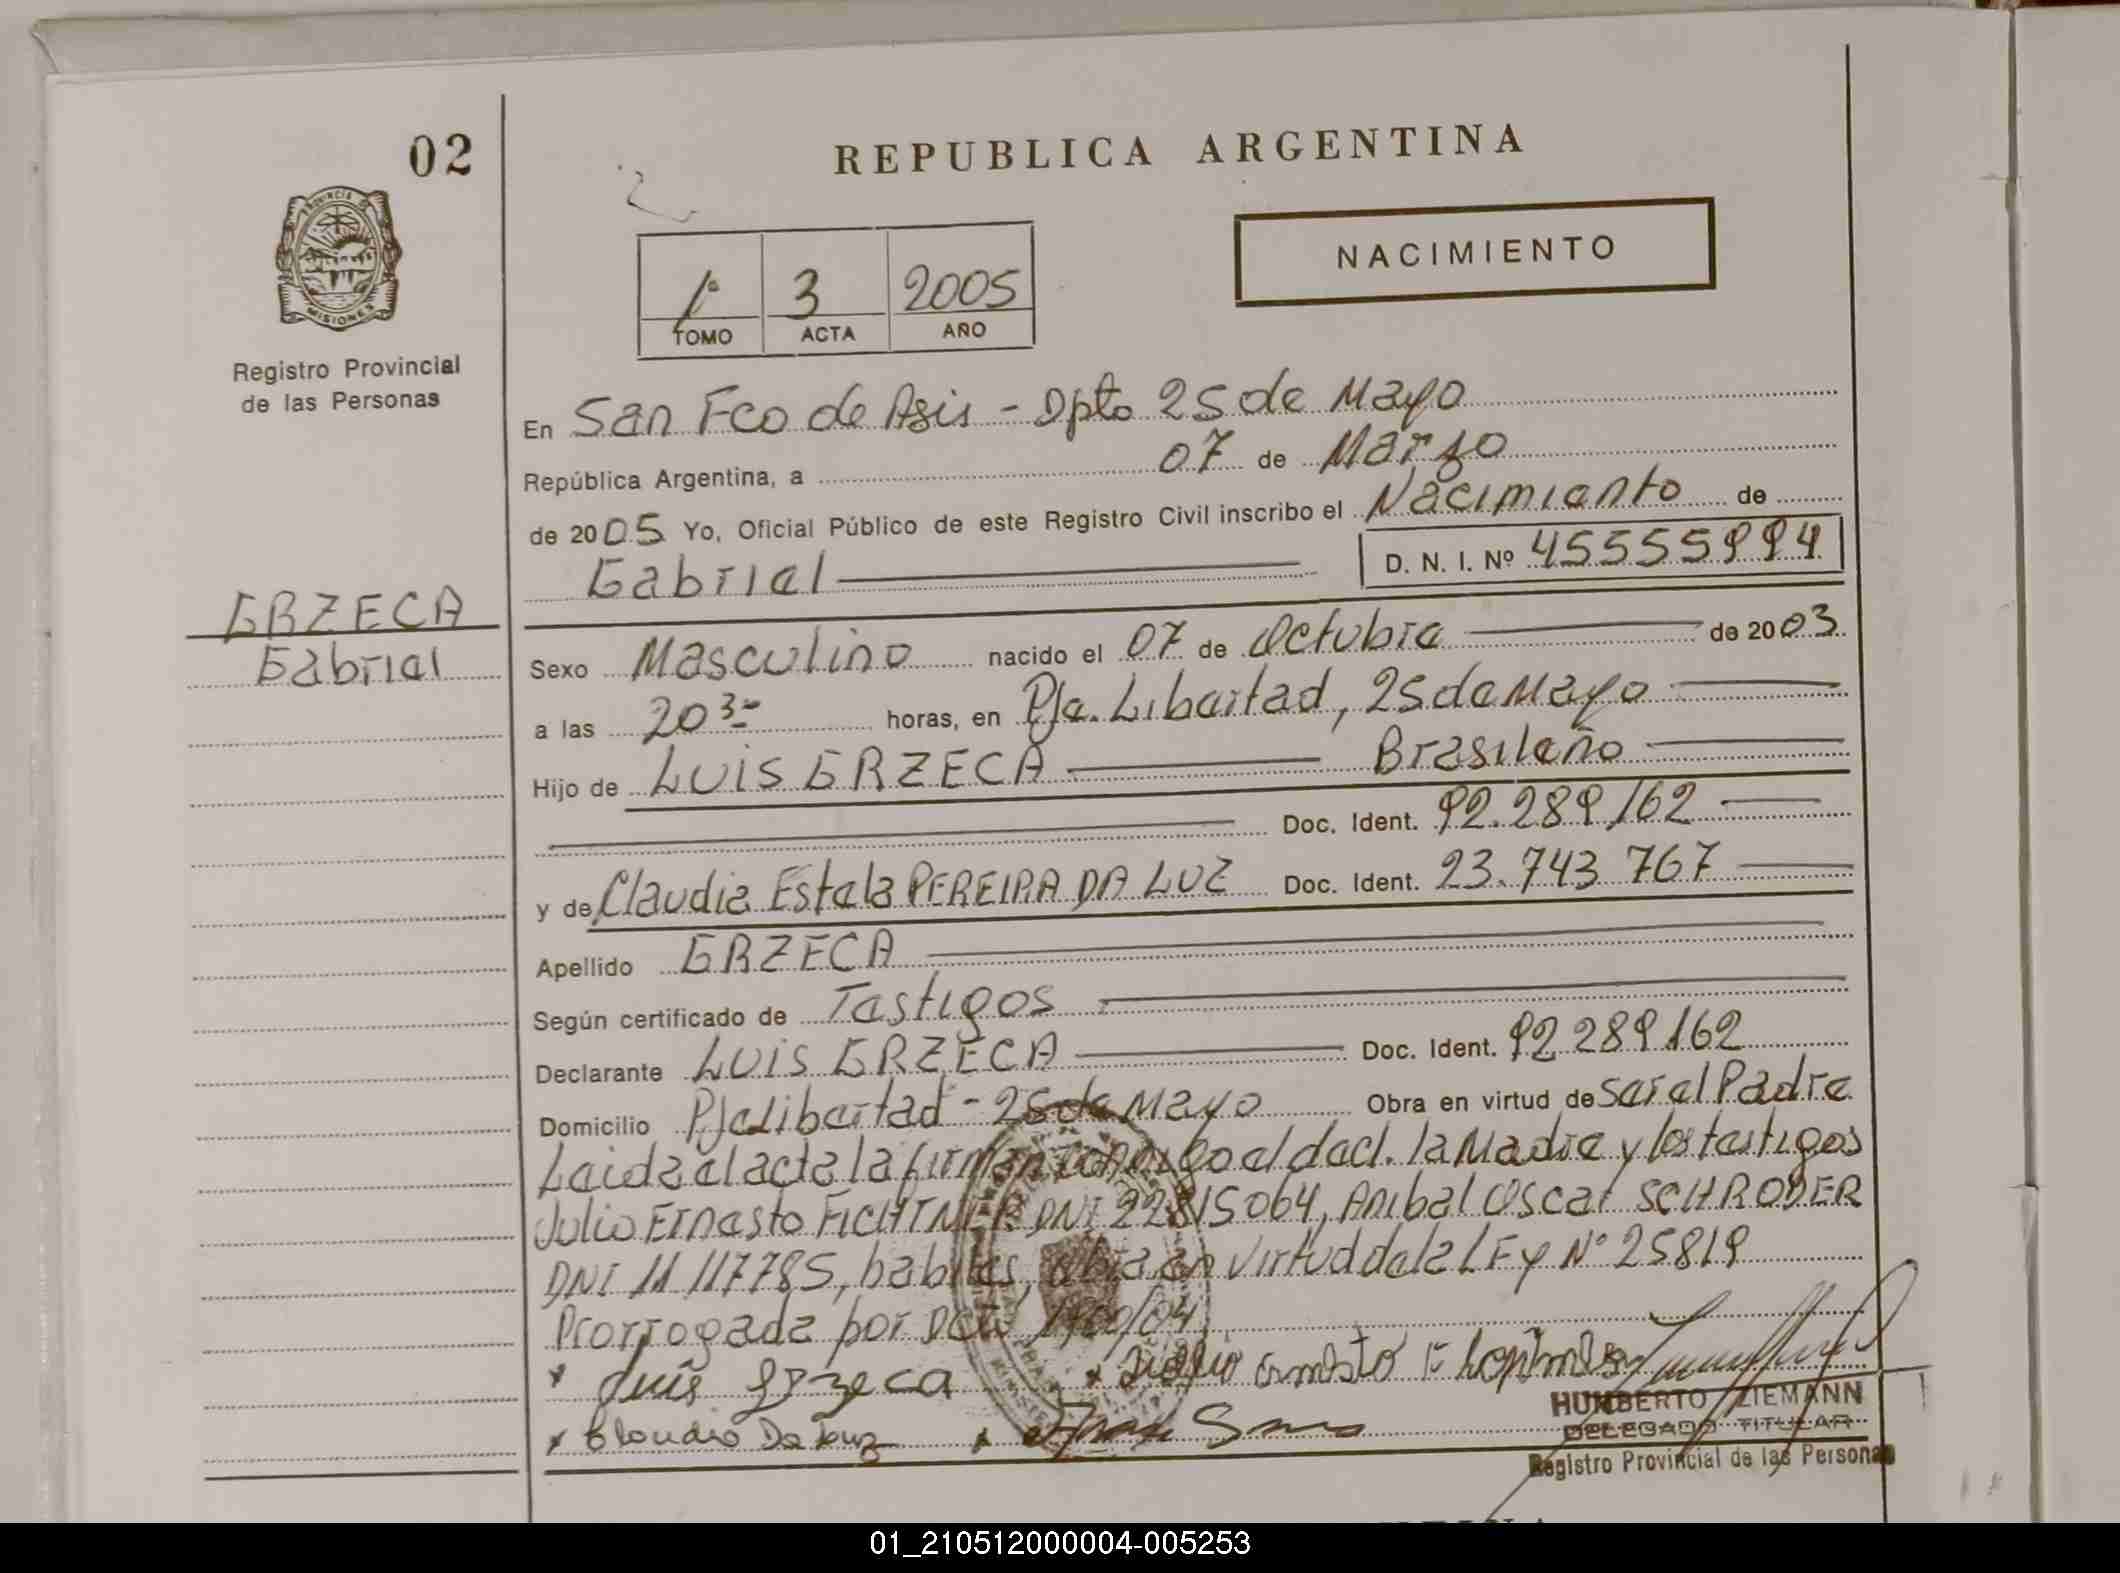 02
REPUBLICA ARGENTINA
PROVINCIA DE
MISIONES
NACIMIENTO
1º 3 2005
TOMO ACTA AÑO
Registro Provincial
de las Personas
En San Fco de Asis - Dpto 25 de Mayo
República Argentina, a 07 de Marzo
de 2005 Yo, Oficial Público de este Registro Civil inscribo el Nacimiento de
Gabriel D. N. I. Nº 45555994
GRZECA
Gabriel
Sexo Masculino nacido el 07 de Octubre de 2003
a las 20 30 horas, en Pje. Libertad, 25 de Mayo
Hijo de LUIS GRZECA Brasileño
Doc. Ident. 92.289162
y de Claudia Estela PEREIRA DA LUZ Doc. Ident. 23.743 767
Apellido GRZECA
Según certificado de Testigos
Declarante LUIS GRZECA Doc. Ident. 92 289 162
Domicilio Pje Libertad - 25 de Mayo Obra en virtud de ser el Padre
Leida el acta la firman conmigo el decl. la Madre y los testigos
Julio Ernesto FICHTNER DNI 22815064, Anibal Oscar SCHRODER
DNI 11 117785, habiles, obra en virtud de la LEy Nº 25819
Prorrogada por Dcto
x Luis Grzeca x Julio Ernesto
x Claudia Da Luz x
HUMBERTO ZIEMANN
DELEGADO TITULAR
Registro Provincial de las Personas
01_210512000004-005253